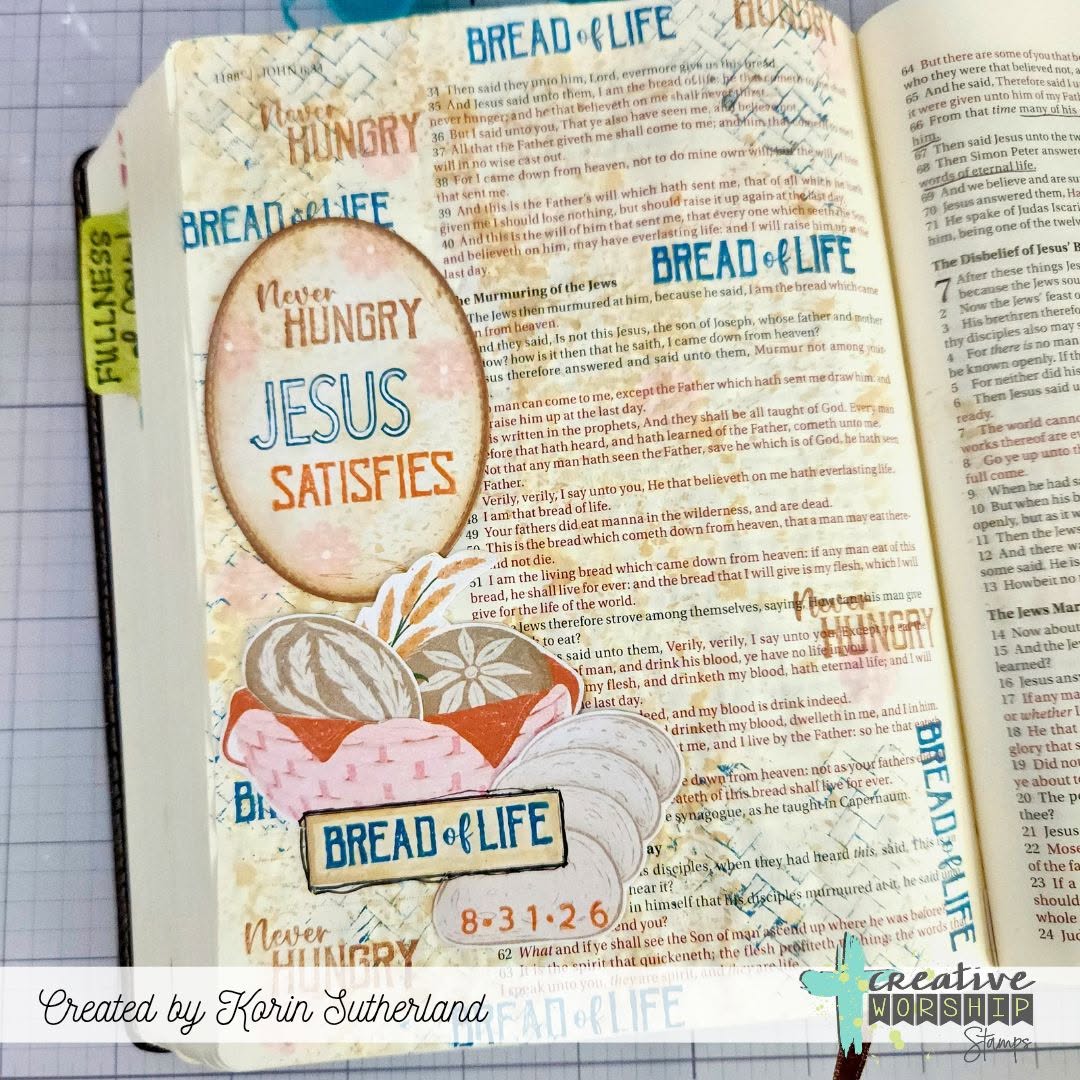 BREAD of LIFE
HUNGRY
1188 JOHN 6:34
Never
HUNGRY
34 Then said they unto him, Lord, evermore give us this bread.
35 And Jesus said unto them, I am the bread of life: he that cometh to
never hunger; and he that believeth on me shall never thirst.
36 But I said unto you, That ye also have seen me, and believe not.
37 All that the Father giveth me shall come to me; and him that cometh to
will in no wise cast out.
38 For I came down from heaven, not to do mine own will, but the will of him
that sent me.
39 And this is the Father's will which hath sent me, that of all which he hath
given me I should lose nothing, but should raise it up again at the last day.
40 And this is the will of him that sent me, that every one which seeth the Son,
and believeth on him, may have everlasting life: and I will raise him up at the
last day.
BREAD of LIFE
BREAD of LIFE
The Murmuring of the Jews
The Jews then murmured at him, because he said, I am the bread which came
from heaven.
they said, Is not this Jesus, the son of Joseph, whose father and mother
how is it then that he saith, I came down from heaven?
therefore answered and said unto them, Murmur not among your-
man can come to me, except the Father which hath sent me draw him: and
raise him up at the last day.
is written in the prophets, And they shall be all taught of God. Every man
fore that hath heard, and hath learned of the Father, cometh unto me.
Not that any man hath seen the Father, save he which is of God, he hath seen
Father.
Verily, verily, I say unto you, He that believeth on me hath everlasting life.
48 I am that bread of life.
49 Your fathers did eat manna in the wilderness, and are dead.
50 This is the bread which cometh down from heaven, that a man may eat there-
not die.
51 I am the living bread which came down from heaven: if any man eat of this
bread, he shall live for ever: and the bread that I will give is my flesh, which I will
give for the life of the world.
Jews therefore strove among themselves, saying, How can this man give
to eat?
said unto them, Verily, verily, I say unto you, Except ye eat the
of man, and drink his blood, ye have no life in you.
my flesh, and drinketh my blood, hath eternal life; and I will
last day.
indeed, and my blood is drink indeed.
drinketh my blood, dwelleth in me, and I in him.
me, and I live by the Father: so he that eateth
down from heaven: not as your fathers did
eateth of this bread shall live for ever.
synagogue, as he taught in Capernaum.
disciples, when they had heard this, said, This is
hear it?
in himself that his disciples murmured at it, he said unto
you?
62 What and if ye shall see the Son of man ascend up where he was before?
63 It is the spirit that quickeneth; the flesh profiteth nothing: the words that
I speak unto you, they are spirit, and they are life.
FULLNESS
of
Never
HUNGRY
JESUS
SATISFIES
Never
HUNGRY
BREAD of LIFE
BREAD of LIFE
8•31•26
Never
HUNGRY
BREAD of LIFE
64 But there are some of you that
who they were that believed not,
65 And he said, Therefore said I
it were given unto him of my
66 From that time many of his
him.
67 Then said Jesus unto the
68 Then Simon Peter
words of eternal life.
69 And we believe and are
70 Jesus answered them,
71 He spake of Judas
him, being one of the
The Disbelief of Jesus'
7 After these things
because the Jews
2 Now the Jews' feast
3 His brethren
thy disciples also may
4 For there is no man
be known openly. If
5 For neither did his
6 Then Jesus said
ready.
7 The world cannot
works thereof are
8 Go ye up unto
full come.
9 When he had
10 But when his
openly, but as it
11 Then the Jews
12 And there
some said, He is
13 Howbeit no
The Jews
14 Now about
15 And the
learned?
16 Jesus
17 If any man
or whether I
18 He that
glory that
19 Did not
ye about to
20 The
thee?
21 Jesus
22
of the
23 If a
should
whole
24
Created by Korin Sutherland
creative
WORSHIP
Stamps